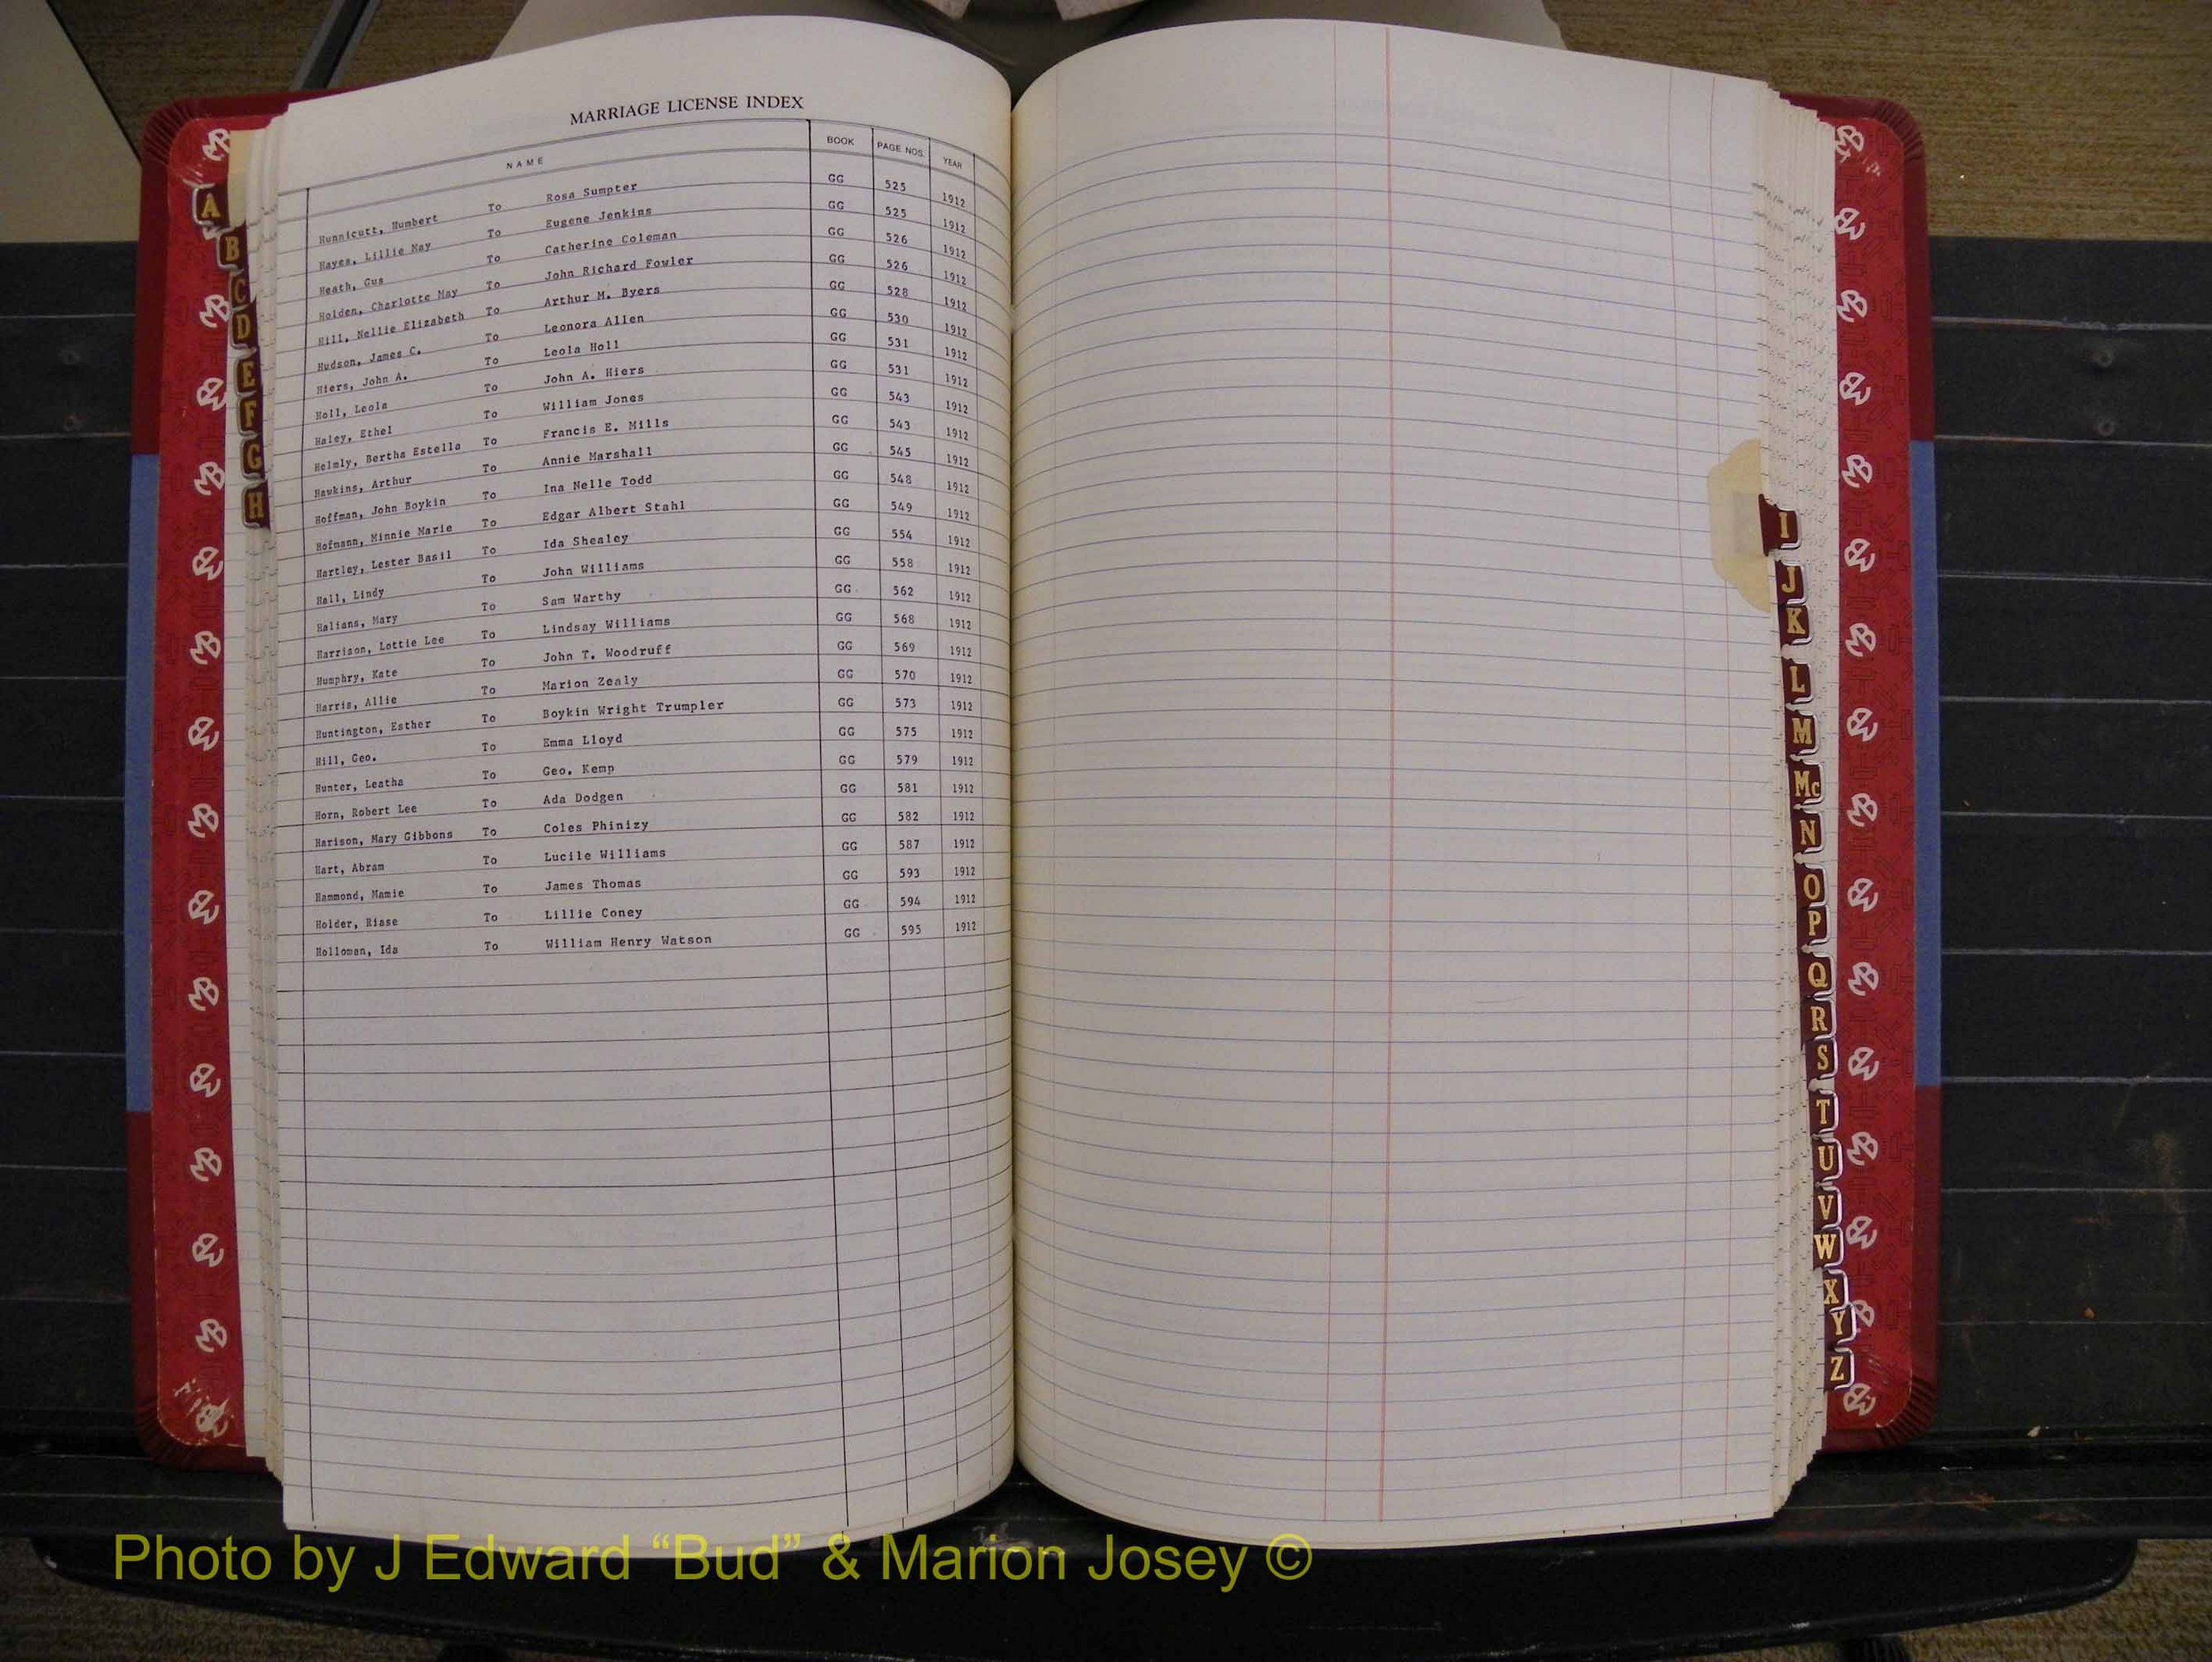 MARRIAGE LICENSE INDEX
NAME BOOK PAGE NOS. YEAR
Hunnicutt, Humbert To Rosa Sumpter GG 525 1912
Hayes, Lillie May To Eugene Jenkins GG 525 1912
Heath, Gus To Catherine Coleman GG 526 1912
Holden, Charlotte May To John Richard Fowler GG 526 1912
Hill, Nellie Elizabeth To Arthur M. Byers GG 528 1912
Hudson, James C. To Leonora Allen GG 530 1912
Hiers, John A. To Leola Holl GG 531 1912
Holl, Leola To John A. Hiers GG 531 1912
Haley, Ethel To William Jones GG 543 1912
Helmly, Bertha Estella To Francis E. Mills GG 543 1912
Hawkins, Arthur To Annie Marshall GG 545 1912
Hoffman, John Boykin To Ina Nelle Todd GG 548 1912
Hofmann, Minnie Marie To Edgar Albert Stahl GG 549 1912
Hartley, Lester Basil To Ida Shealey GG 554 1912
Hall, Lindy To John Williams GG 558 1912
Halians, Mary To Sam Warthy GG 562 1912
Harrison, Lottie Lee To Lindsay Williams GG 568 1912
Humphry, Kate To John T. Woodruff GG 569 1912
Harris, Allie To Marion Zealy GG 570 1912
Huntington, Esther To Boykin Wright Trumpler GG 573 1912
Hill, Geo. To Emma Lloyd GG 575 1912
Hunter, Leatha To Geo. Kemp GG 579 1912
Horn, Robert Lee To Ada Dodgen GG 581 1912
Harison, Mary Gibbons To Coles Phinizy GG 582 1912
Hart, Abram To Lucile Williams GG 587 1912
Hammond, Mamie To James Thomas GG 593 1912
Holder, Riase To Lillie Coney GG 594 1912
Holloman, Ida To William Henry Watson GG 595 1912
A
B
C
D
E
F
G
H
I
J
K
L
M
Mc
N
O
P
Q
R
S
T
U
V
W
X
Y
Z
Photo by J Edward “Bud” & Marion Josey ©